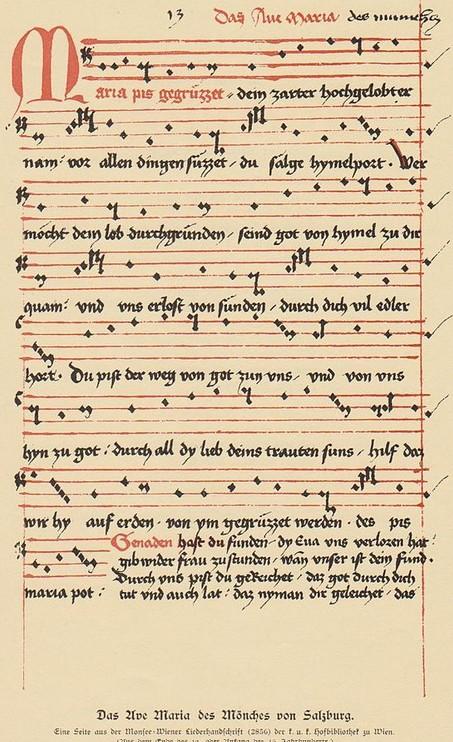 13 Das Ave Maria des munchs
Maria pis gegrüzzet · dein zarter hochgelobter
nam: vor allen dingen süzzet · du sälge hymelport · Wer
möcht dein lob durchgründen · seind got von hymel zu dir
quam: vnd vns erlost von sünden · durch dich vil edler
hort · Du pist der weg von got zun vns · vnd von vns
hyn zu got: durch all dy lieb deins trauten suns · hilf daz
wir hy auf erden · von ym gegrüzzet werden · des pis
Genaden hast du funden · dy Eua vns verloren hat:
gib wider frau zustunden · wan vnser ist dein fund ·
Durch vns pist du gereichet · daz got durch dich
maria pot: tut vnd auch lat: daz nyman dir geleichet · das
Das Ave Maria des Mönches von Salzburg.
Eine Seite aus der Monsee-Wiener Liederhandschrift (2856) der k. u. k. Hofbibliothek zu Wien.